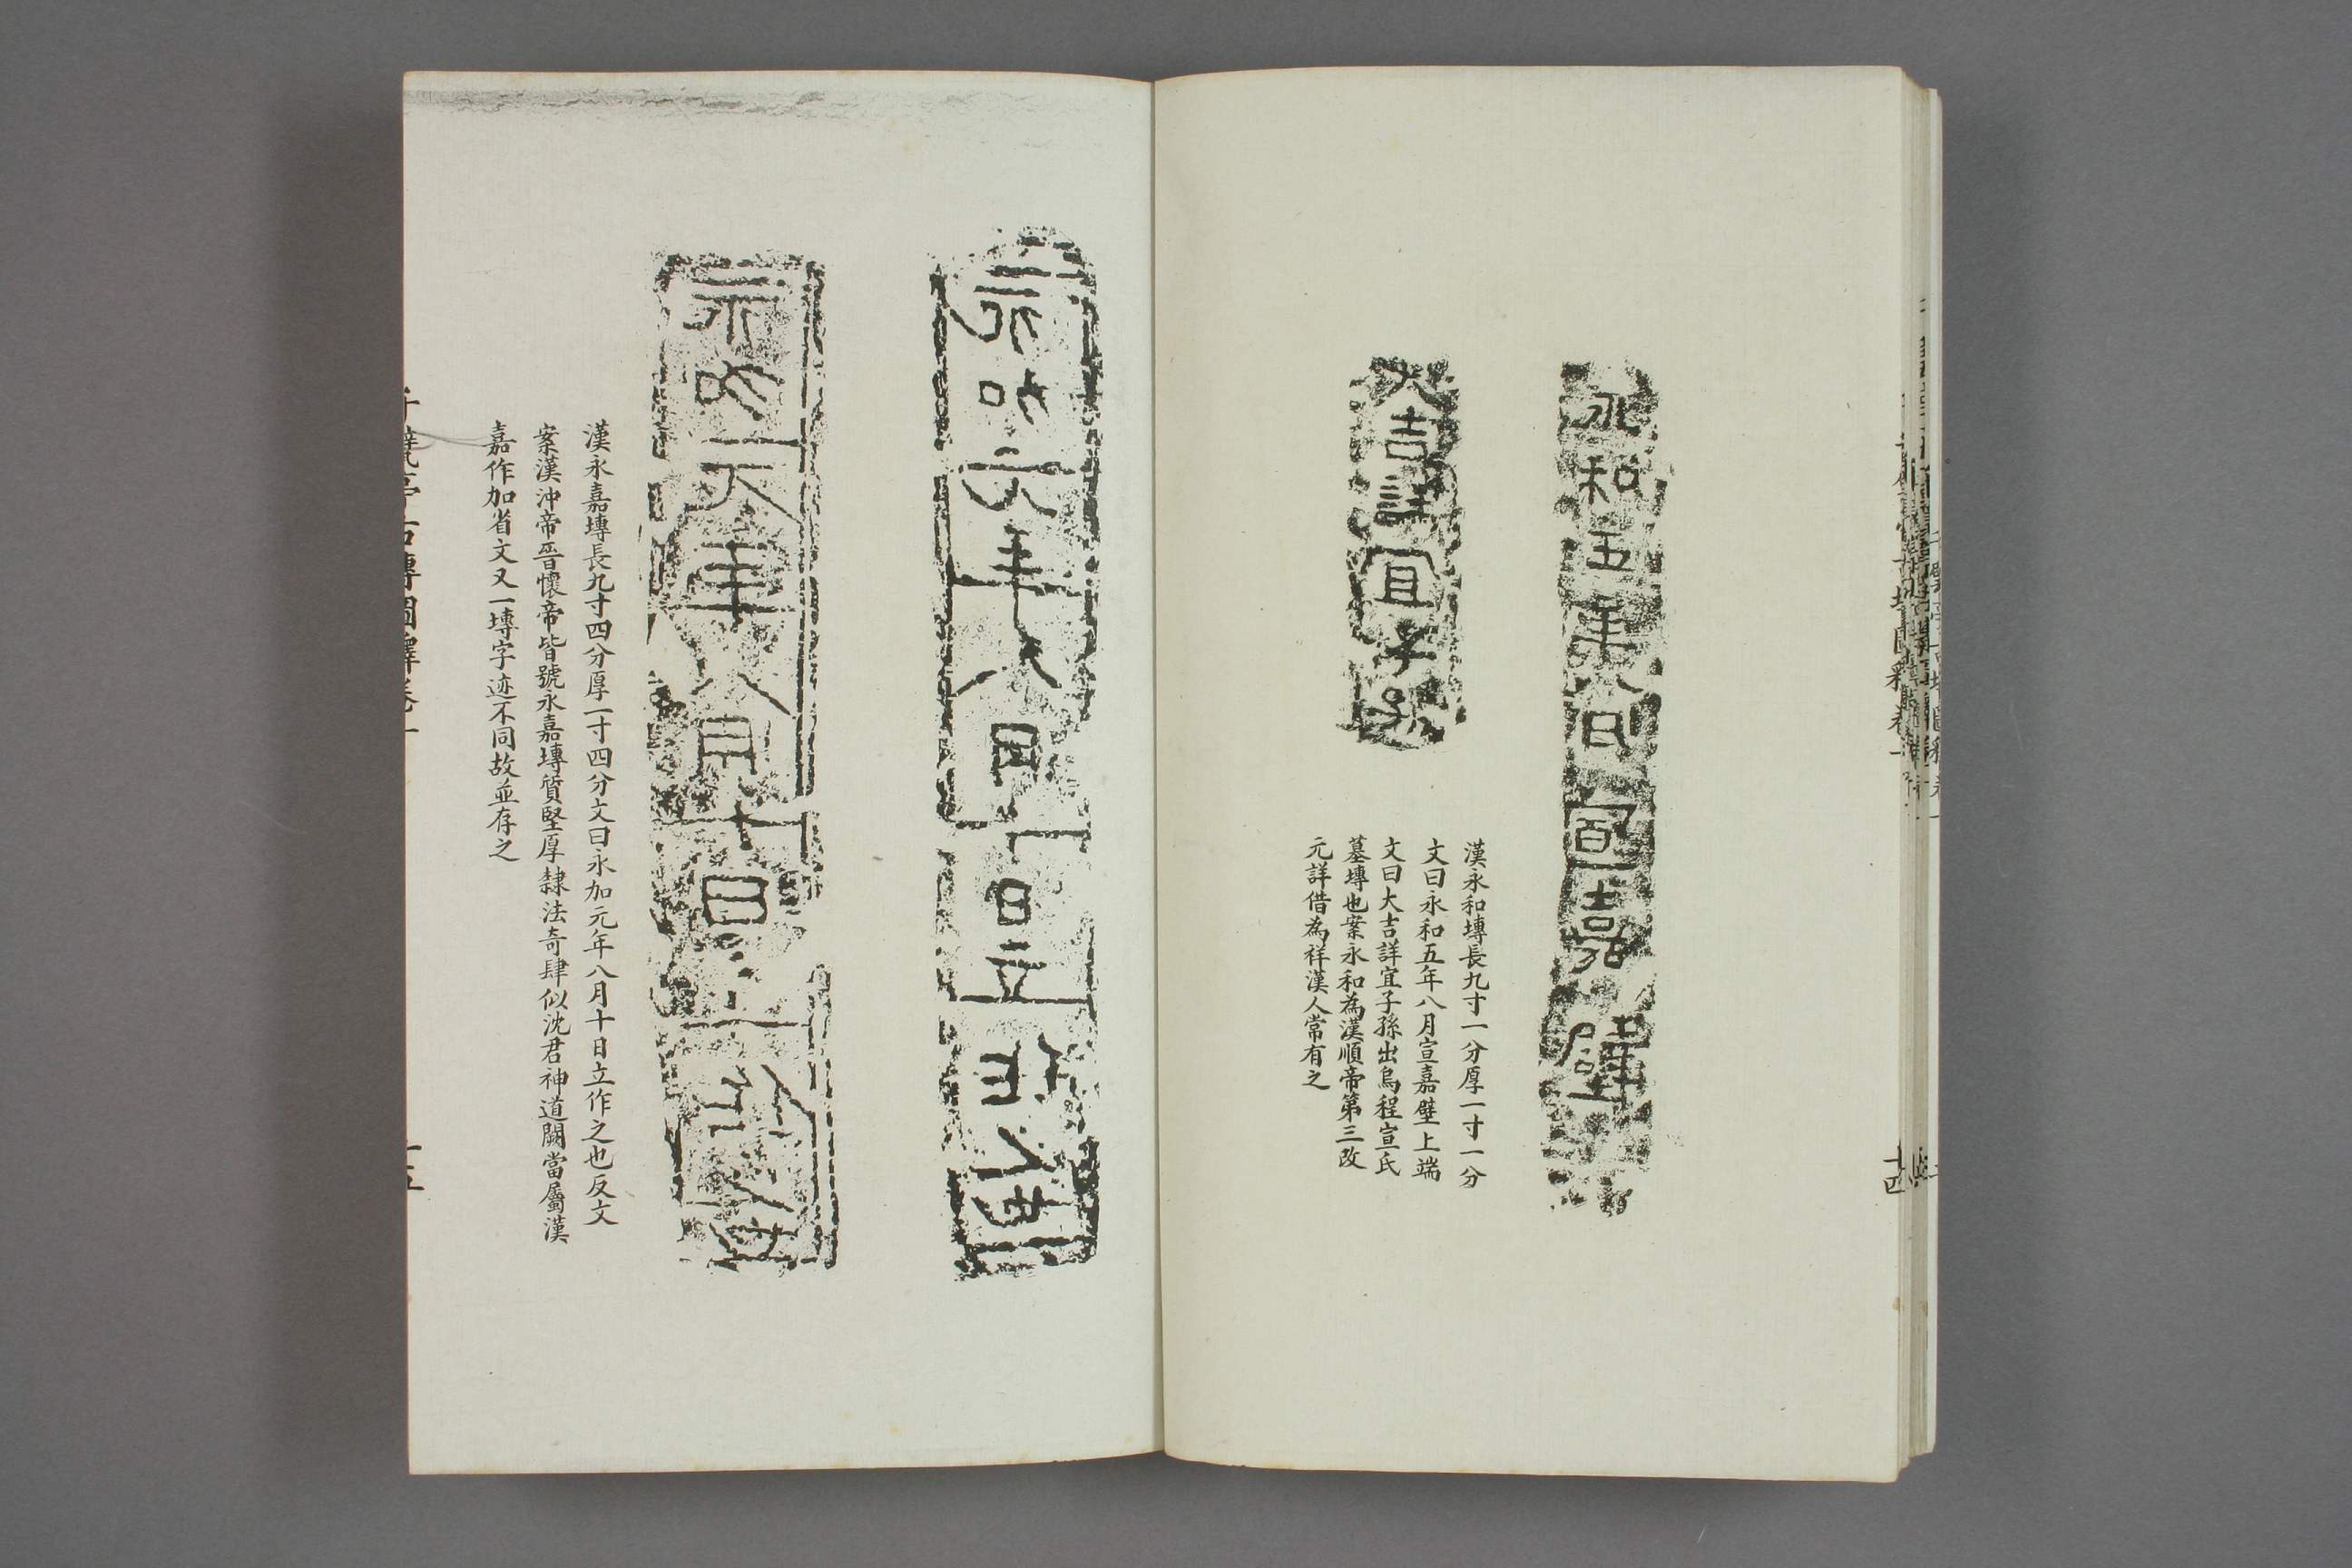 永和五年八月宣嘉壁
大吉詳宜子孫
漢永和塼長九寸一分厚一寸一分
文曰永和五年八月宣嘉壁上端
文曰大吉詳宜子孫出烏程宣氏
墓塼也案永和為漢順帝第三改
元詳借為祥漢人常有之
十四
永加元年八月十日立作之也
永加元年八月十日立作之也
漢永嘉塼長九寸四分厚一寸四分文曰永加元年八月十日立作之也反文
案漢沖帝晉懷帝皆號永嘉塼質堅厚隸法奇肆似沈君神道闕當屬漢
嘉作加省文又一塼字迹不同故並存之
千甓亭古塼圖釋卷一
十五